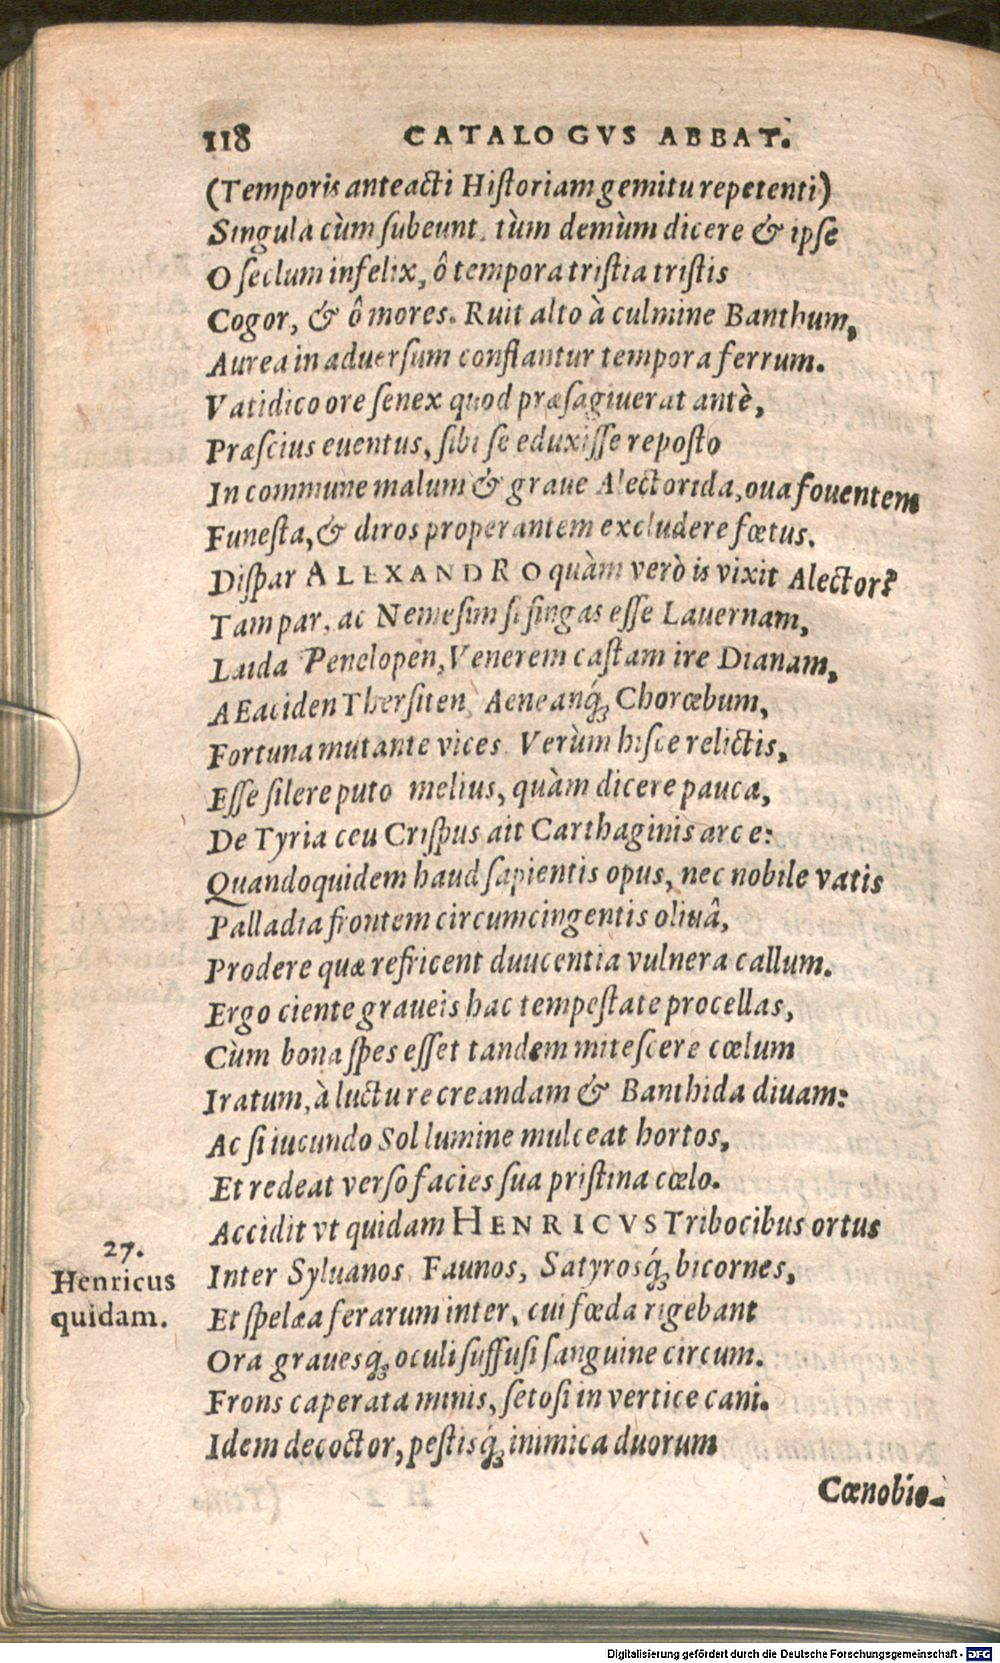 118 CATALOGVS ABBAT.
(Temporis anteacti Historiam gemitu repetenti)
Singula cùm subeunt, tùm demùm dicere & ipse
O seclum infelix, ô tempora tristia tristis
Cogor, & ô mores. Ruit alto à culmine Banthum,
Aurea in aduersum conflantur tempora ferrum.
Vatidico ore senex quod præsagiuerat antè,
Præscius euentus, sibi se eduxisse reposto
In commune malum & graue Alectorida, oua fouentem
Funesta, & diros properantem excludere fœtus.
Dispar ALEXANDRO quàm verò is vixit Alector?
Tam par, ac Nemesim si fingas esse Lauernam,
Laida Penelopen, Venerem castam ire Dianam,
AEaciden Thersiten, Aeneanq́ꝫ Chorœbum,
Fortuna mutante vices. Verùm hisce relictis,
Esse silere puto melius, quàm dicere pauca,
De Tyria ceu Crispus ait Carthaginis arce:
Quandoquidem haud sapientis opus, nec nobile vatis
Palladia frontem circumcingentis oliuâ,
Prodere quæ refricent duucentia vulnera callum.
Ergo ciente graueis hac tempestate procellas,
Cùm bona spes esset tandem mitescere cœlum
Iratum, à luctu recreandam & Banthida diuam:
Ac si iucundo Sol lumine mulceat hortos,
Et redeat verso facies sua pristina cœlo.
Accidit vt quidam HENRICVS Tribocibus ortus
27.
Henricus
quidam.
Inter Syluanos, Faunos, Satyrosq́ꝫ bicornes,
Et spelæa ferarum inter, cui fœda rigebant
Ora grauesq́ꝫ oculi suffusi sanguine circum.
Frons caperata minis, setosi in vertice cani.
Idem decoctor, pestisq́ꝫ inimica duorum
Cœnobio-
Digitalisierung gefördert durch die Deutsche Forschungsgemeinschaft - DFG